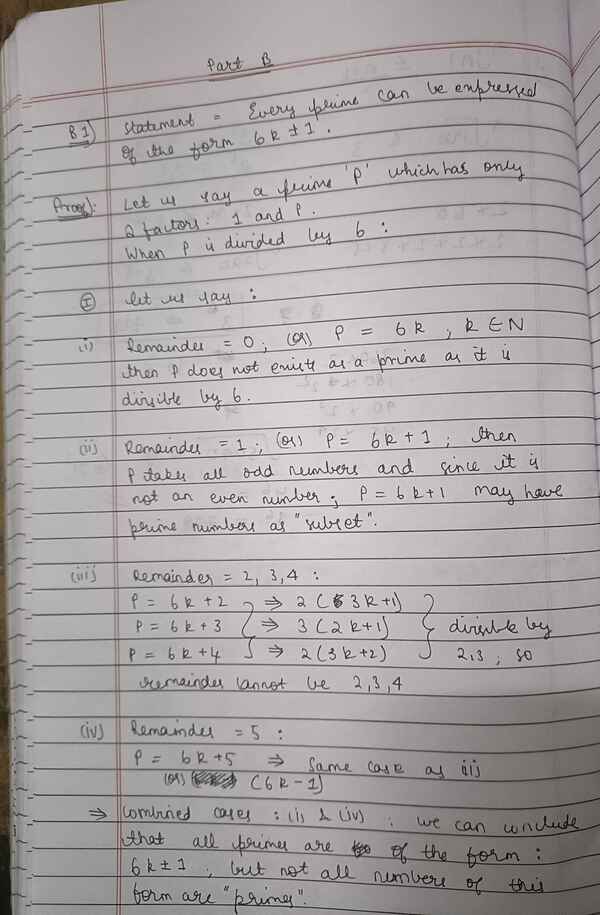 Part B
B1) Statement = Every prime can be expressed
of the form 6k ± 1.
Proof): Let us say a prime 'P' which has only
2 factors: 1 and P.
When P is divided by 6 :
I let us say :
(i) Remainder = 0; (or) P = 6k , k ∈ N
then P does not exist as a prime as it is
divsible by 6.
(ii) Remainder = 1; (or) P = 6k + 1 ; then
P takes all odd numbers and since it is
not an even number ; P = 6k+1 may have
prime numbers as "subset".
(iii) Remainder = 2, 3, 4 :
P = 6k + 2 ⇒ 2 (3k+1)
P = 6k + 3 ⇒ 3 (2k+1) divisible by
P = 6k + 4 ⇒ 2(3k+2) 2,3 ; so
remainder cannot be 2,3,4
(iv) Remainder = 5 :
P = 6k+5 ⇒ Same case as ii)
(or) (6k-1)
⇒ Combined cases : (ii & (iv) : we can conclude
that all primes are of the form :
6k±1 ; but not all numbers of this
form are "primes".